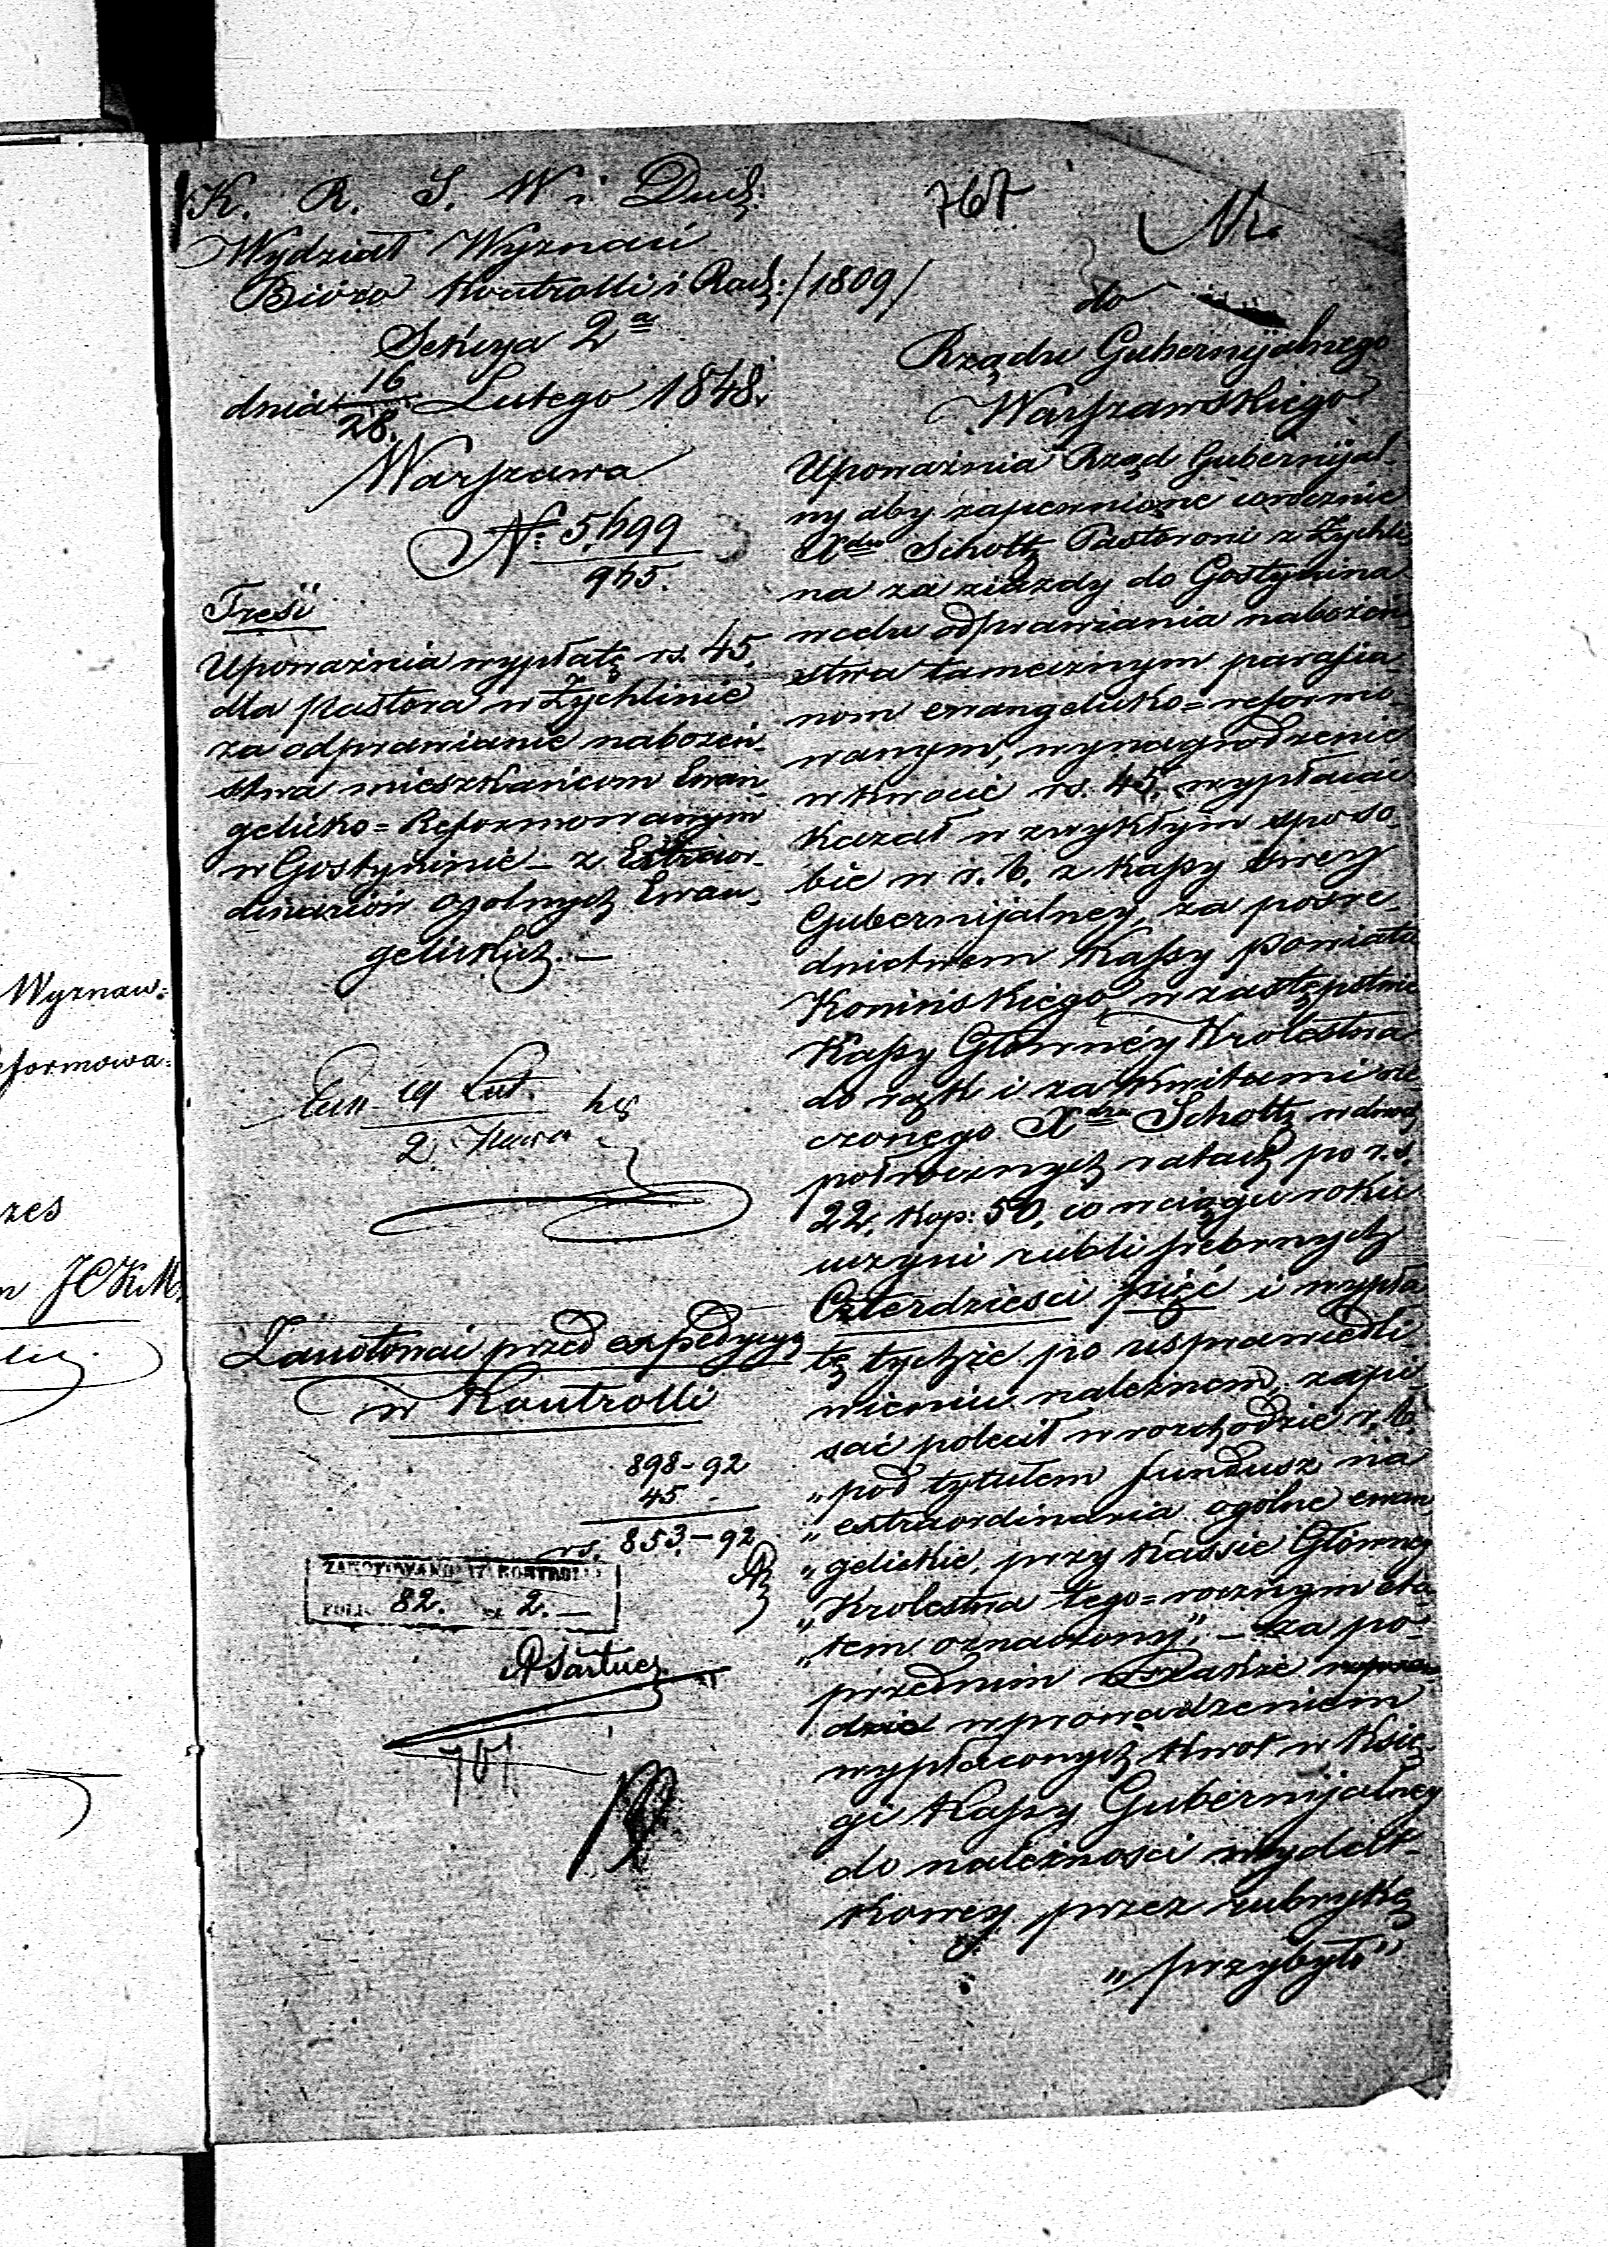 K. R. S. W i Duch:
Wydział Wyznań
Bióro Kontrolli i Rach: /1809/
Sekcya 2a
dnia 16/28 Lutego 1848.
Warszawa
N: 5,699
965.
Treść
Upoważnia wypłatę rs. 45.
dla pastora w Żychlinie
za odprawianie nabożeń-
stwa mieszkańcom Ewan-
gelicko=Reformowanym
w Gostyninie – z Extraor-
dinariów ogolnych Ewan-
gelickich. –
19 Lut.
2.
Zanotować przed expedycyą
w Kontrolli
898-92
45 -
rs. 853.-92
ZANOTOWANO W KONTROLLI
FOLIO 82. N 2. –
767
do
Rządu Gubernijalnego
Warszawskiego
Upoważnia Rząd Gubernijal-
ny aby zapewnione corocznie
Xdzu Scholtz Pastorowi z Żychli-
na za ziazdy do Gostynina
w celu odprawiania nabożeń-
stwa tamecznym parafia-
nom ewangelicko=reformo-
wanym, wynagrodzenie
w kwocie rs. 45, wypłacać
kazał w zwykłym sposo-
bie w r. b. z kassy swey
Gubernijalney, za pośre-
dnictwem Kassy powiatu
Konińskiego, w zastępstwie
Kassy Głównéy Krolestwa
do rąk i za kwitami rze-
czonego Xdza Scholtz w dwóch
połrocznych ratach po r.s.
22. kop: 50, co w ciągu roku
uczyni rubli srebrnych
Czterdzieści pięć i wypła-
tę tychże po usprawiedli-
wieniu należnem, zapi-
sać polecił w rozchodzie r. b.
„pod tytułem fundusz na
„extraordinaria ogólne ewan-
„gelickie, przy Kassie Główney
„Krolestwa tego=rocznym eta-
„tem oznaczony”. – za po-
przednim
wprowadzeniem
wypłaconych kwot w Księ-
gi Kassy Gubernijalney
do należności wydat-
kowey przez rubrykę
„przybyło”
Wyznaw:
eformowa:
zes
JCKM.